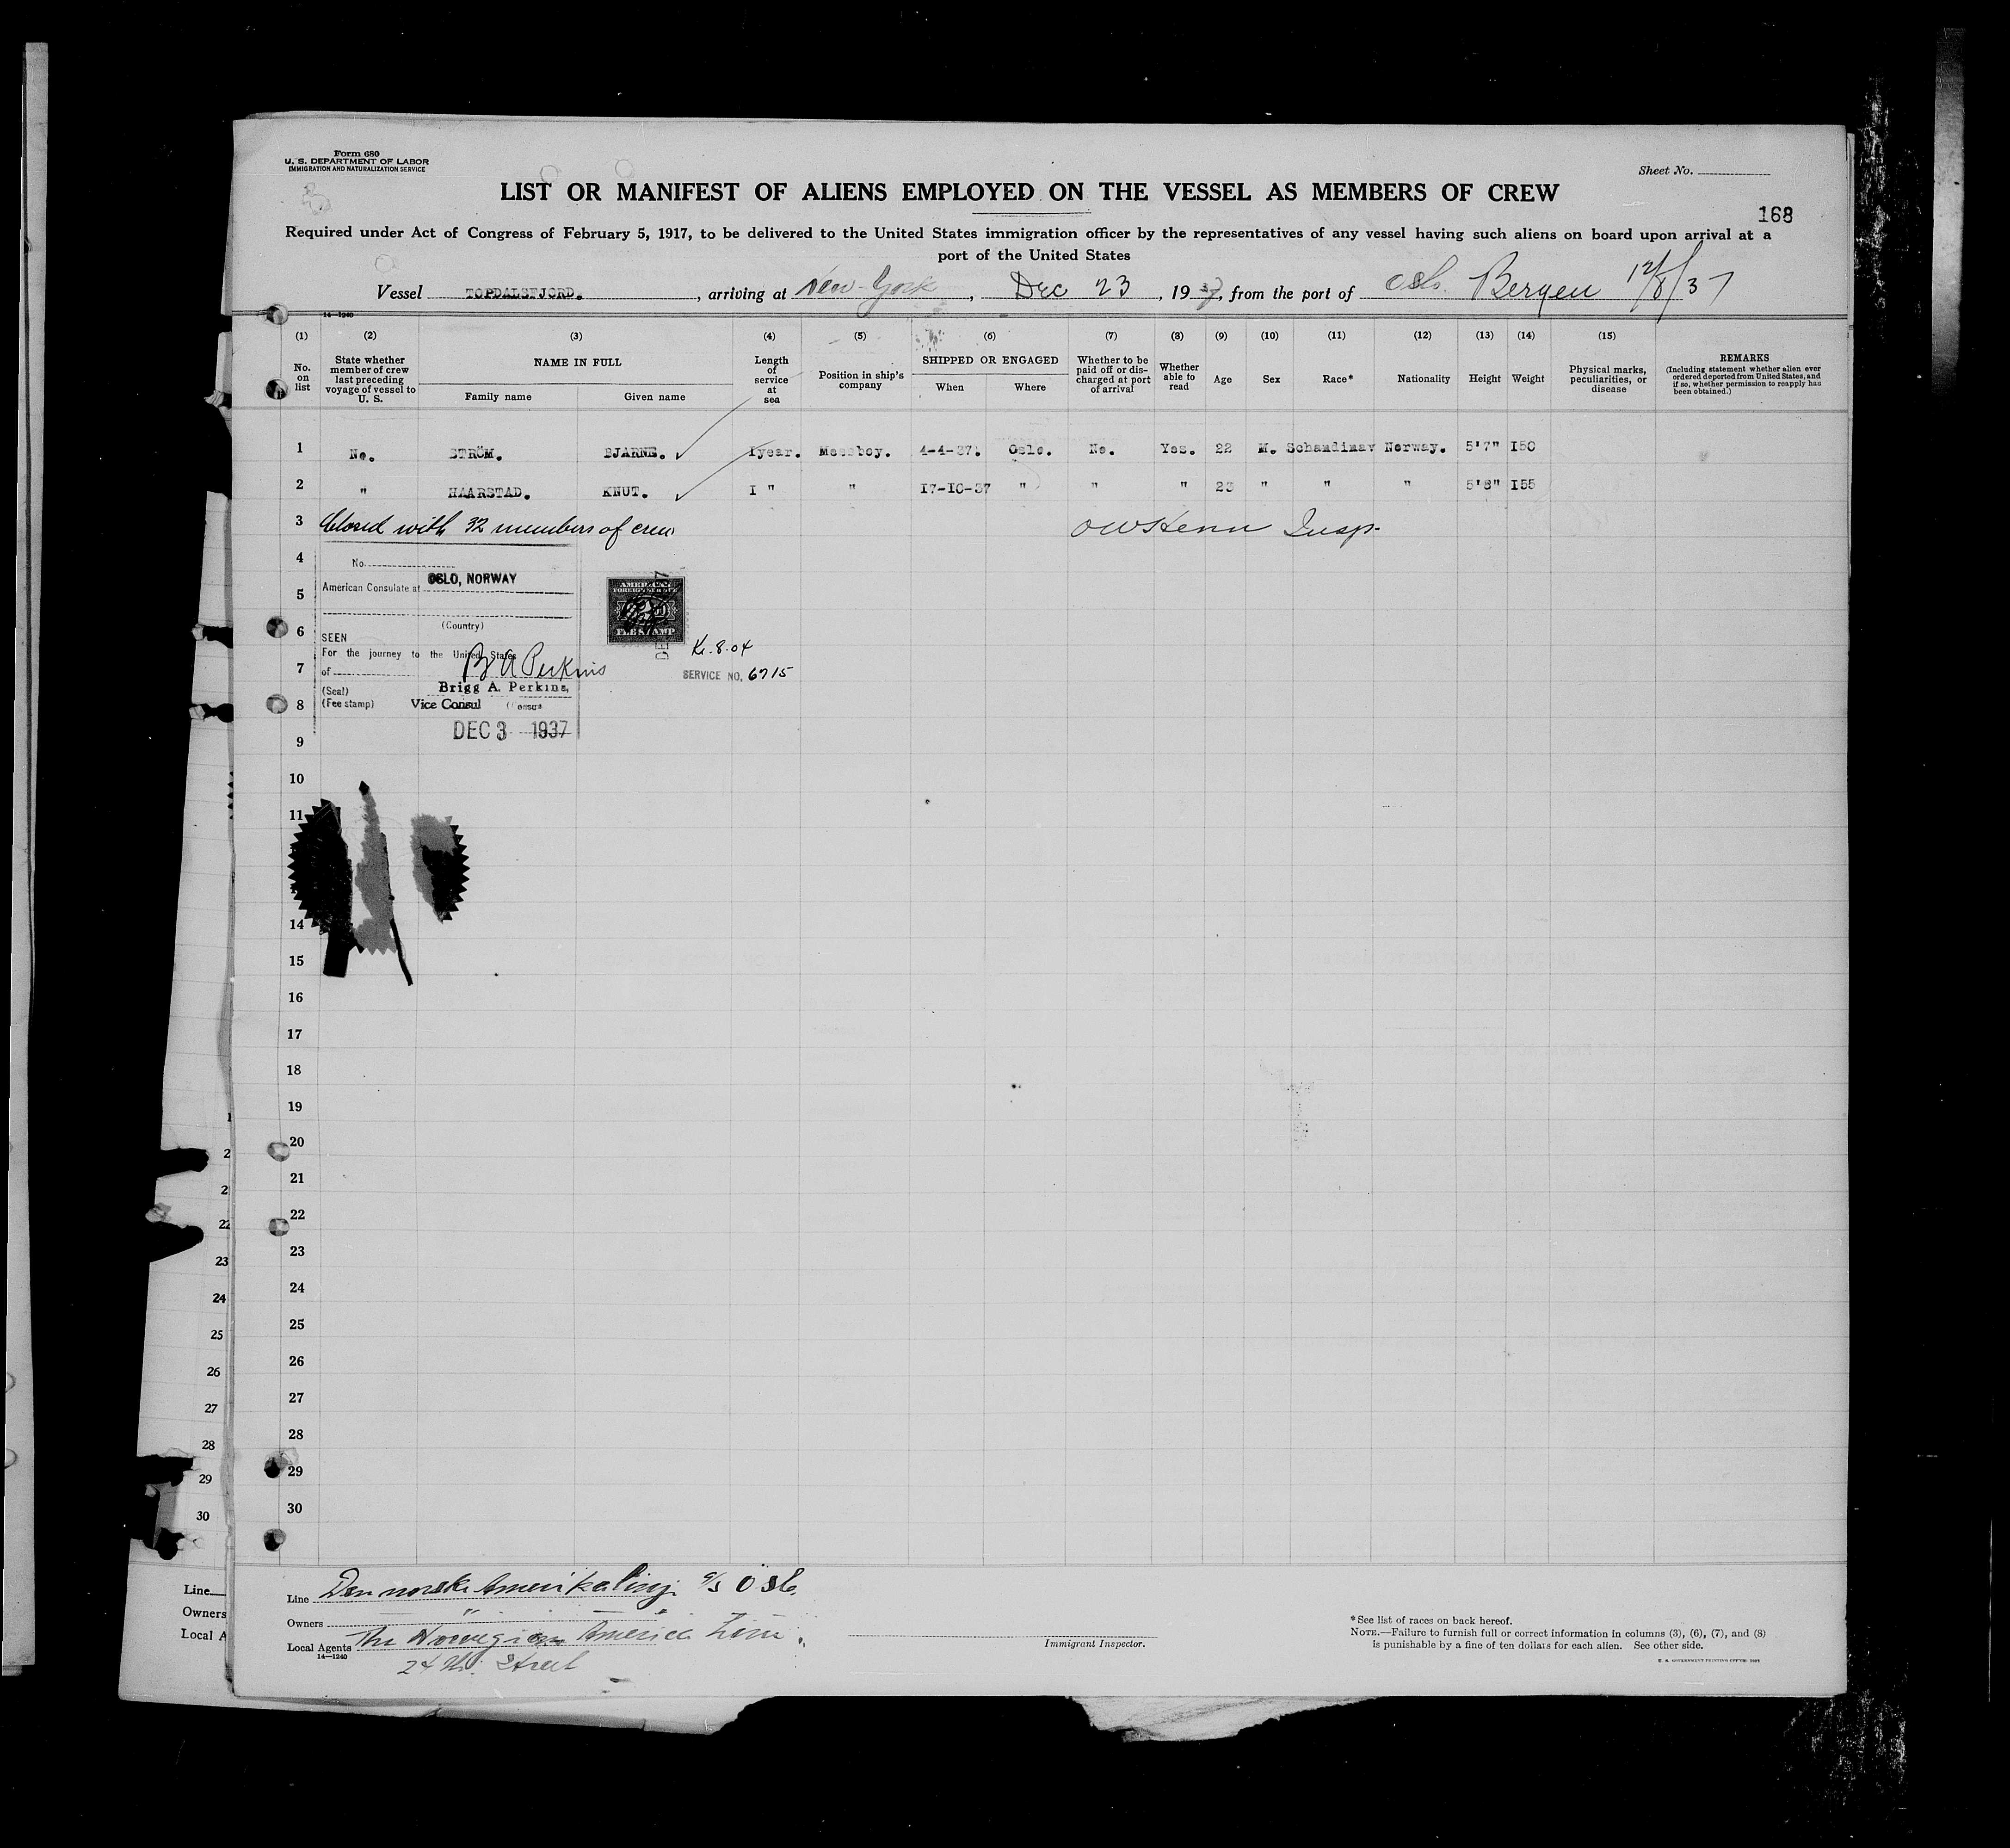 Form 680
U. S. DEPARTMENT OF LABOR
IMMIGRATION AND NATURALIZATION SERVICE
Sheet No.
LIST OR MANIFEST OF ALIENS EMPLOYED ON THE VESSEL AS MEMBERS OF CREW
168
Required under Act of Congress of February 5, 1917, to be delivered to the United States immigration officer by the representatives of any vessel having such aliens on board upon arrival at a
port of the United States
Vessel TOPDALSFJORD. , arriving at New-York , Dec 23 , 1937, from the port of Oslo. Bergen 12/8/37
14—1240
(1) (2) (3) (4) (5) (6) (7) (8) (9) (10) (11) (12) (13) (14) (15)
No. on list
State whether member of crew last preceding voyage of vessel to U. S.
NAME IN FULL
Family name
Given name
Length of service at sea
Position in ship's company
SHIPPED OR ENGAGED
When
Where
Whether to be paid off or discharged at port of arrival
Whether able to read
Age
Sex
Race*
Nationality
Height
Weight
Physical marks, peculiarities, or disease
REMARKS
(Including statement whether alien ever ordered deported from United States, and if so, whether permission to reapply has been obtained.)
1 No. STRÖM. BJARNE. 1year. Messboy. 4-4-37. Oslo. No. Yes. 22 M. Schandinav Norway. 5'7" I50
2 " HAARSTAD. KNUT. I " " I7-I0-37 " " " 23 " " " 5'8" I55
3 Closed with 32 members of crew Insp.
4
5
6
7
8
9
10
11
14
15
16
17
18
19
20
21
22
23
24
25
26
27
28
29
30
No.
American Consulate at OSLO, NORWAY
(Country)
SEEN
For the journey to the United States
of B A Perkins
(Seal) Brigg A. Perkins,
(Fee stamp) Vice Consul
DEC 3 1937
AMERICAN
FOREIGN SERVICE
FEE STAMP
Kr. 8.04
SERVICE NO. 6715
Line Den norske Amerikalinje a/s Oslo.
Owners "
Local Agents The Norwegian America Line.
14—1240
24 Street
Immigrant Inspector.
* See list of races on back hereof.
NOTE.—Failure to furnish full or correct information in columns (3), (6), (7), and (8)
is punishable by a fine of ten dollars for each alien. See other side.
1
2
2
22
23
24
25
26
27
28
29
30
Line
Owners
Local A